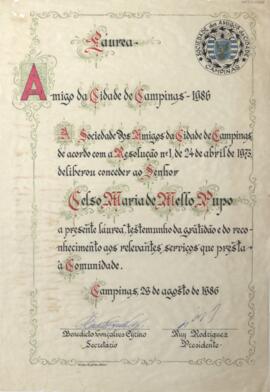 Laurea
SOCIEDADE DOS AMIGOS DA CIDADE
CAMPINAS
Amigo da Cidade de Campinas - 1986
A Sociedade dos Amigos da Cidade de Campinas,
de acordo com a Resolução nº 1, de 24 de abril de 1973,
deliberou conceder ao Senhor
Celso Maria de Mello Pupo
a presente laurea, testemunho da gratidão e do reco-
nhecimento aos relevantes serviços que presta
à Comunidade.
Campinas, 28 de agosto de 1986
Benedicto Gonçalves Cytino Ruy Rodriguez
Secretario Presidente